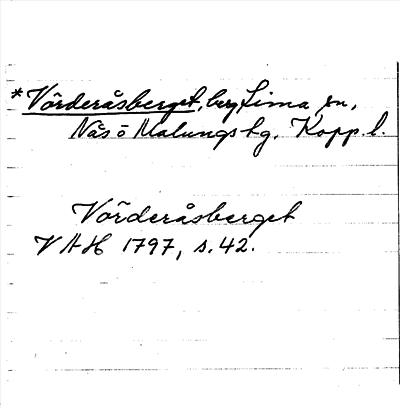 *Vörderåsberget, berg, Lima sn,
Nås o Malungs tg, Kopp. l.
Vörderåsberget
VAH 1797, s. 42.